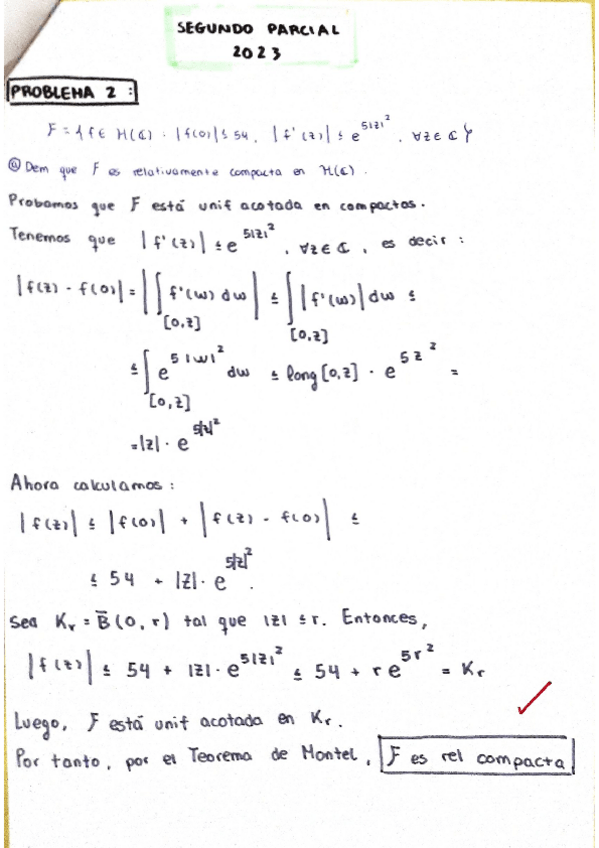 SEGUNDO PARCIAL
2023
PROBLEMA 2 :
F = { f ∈ H(ℂ) : |f(0)| ≤ 54, |f'(z)| ≤ e^{5|z|^2}, ∀z ∈ ℂ }
ⓐ Dem que F es relativamente compacta en H(ℂ).
Probamos que F está unif acotada en compactos.
Tenemos que |f'(z)| ≤ e^{5|z|^2}, ∀z ∈ ℂ, es decir :
|f(z) - f(0)| = |∫_{[0,z]} f'(w) dw| ≤ ∫_{[0,z]} |f'(w)| dw ≤
≤ ∫_{[0,z]} e^{5|w|^2} dw ≤ long [0,z] · e^{5z^2} =
= |z| · e^{5|z|^2}
Ahora calculamos :
|f(z)| ≤ |f(0)| + |f(z) - f(0)| ≤
≤ 54 + |z| · e^{5|z|^2}.
Sea K_r = B̄(0,r) tal que |z| ≤ r. Entonces,
|f(z)| ≤ 54 + |z| · e^{5|z|^2} ≤ 54 + r e^{5r^2} = K_r
Luego, F está unif acotada en K_r.
Por tanto, por el Teorema de Montel, F es rel compacta